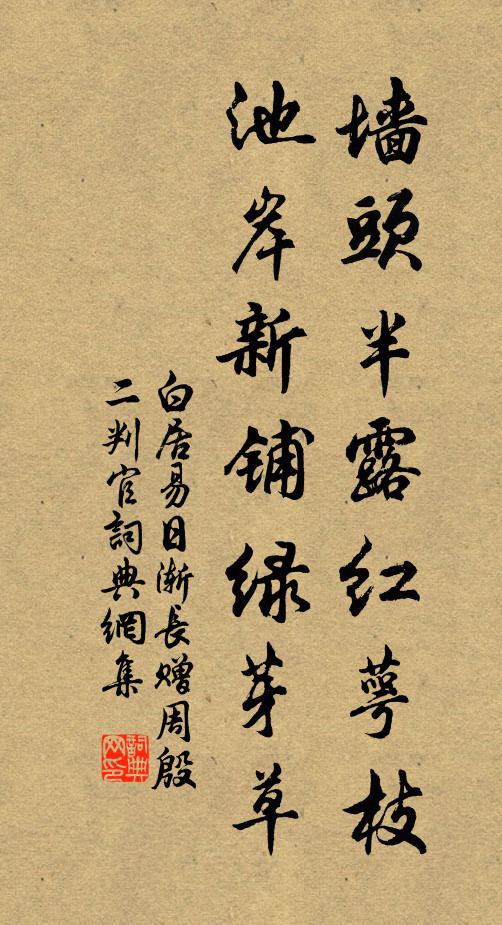 墙頭半露紅萼枝
池岸新铺绿芽草
白居易日漸長赠周殷
二判官詞典網集
詞典
网印